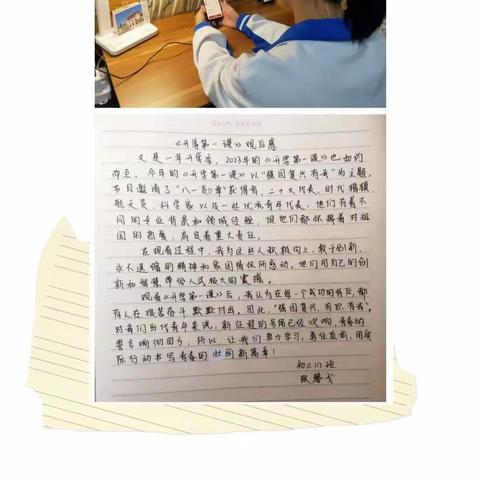 《开学第一课》观后感
又是一年开学季，2023年的《开学第一课》也如约
而至。今年的《开学第一课》以“强国复兴有我”为主题，
节目邀请了“八一勋章”获得者、二十大代表、时代楷模、
航天员、科学家以及一些优秀青年代表，他们有着不
同的专业背景和领域经验，但他们都怀揣着对祖
国的热爱，肩负着重大责任。
在观看过程中，我为这些人积极向上、敢于创新、
永不退缩的精神和家国情怀所感动。他们用自己的创
新和智慧带给人民极大的震撼。
观看《开学第一课》后，我认为在每一个成功的背后，都
有人在艰苦奋斗默默付出。因此，“强国复兴，有你有我”。
对我们当代青年来说，新征程的号角已经吹响，青春的
誓言响彻四方，所以，让我们努力学习，勇往直前，用实
际行动书写青春的壮丽新篇章！
初三(1)班